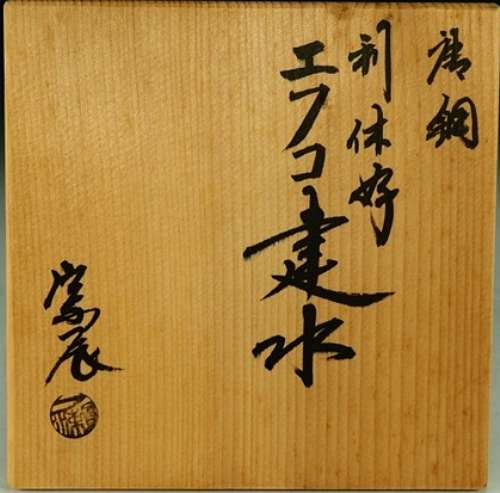 唐銅
利休好
エフコ建水
宗辰